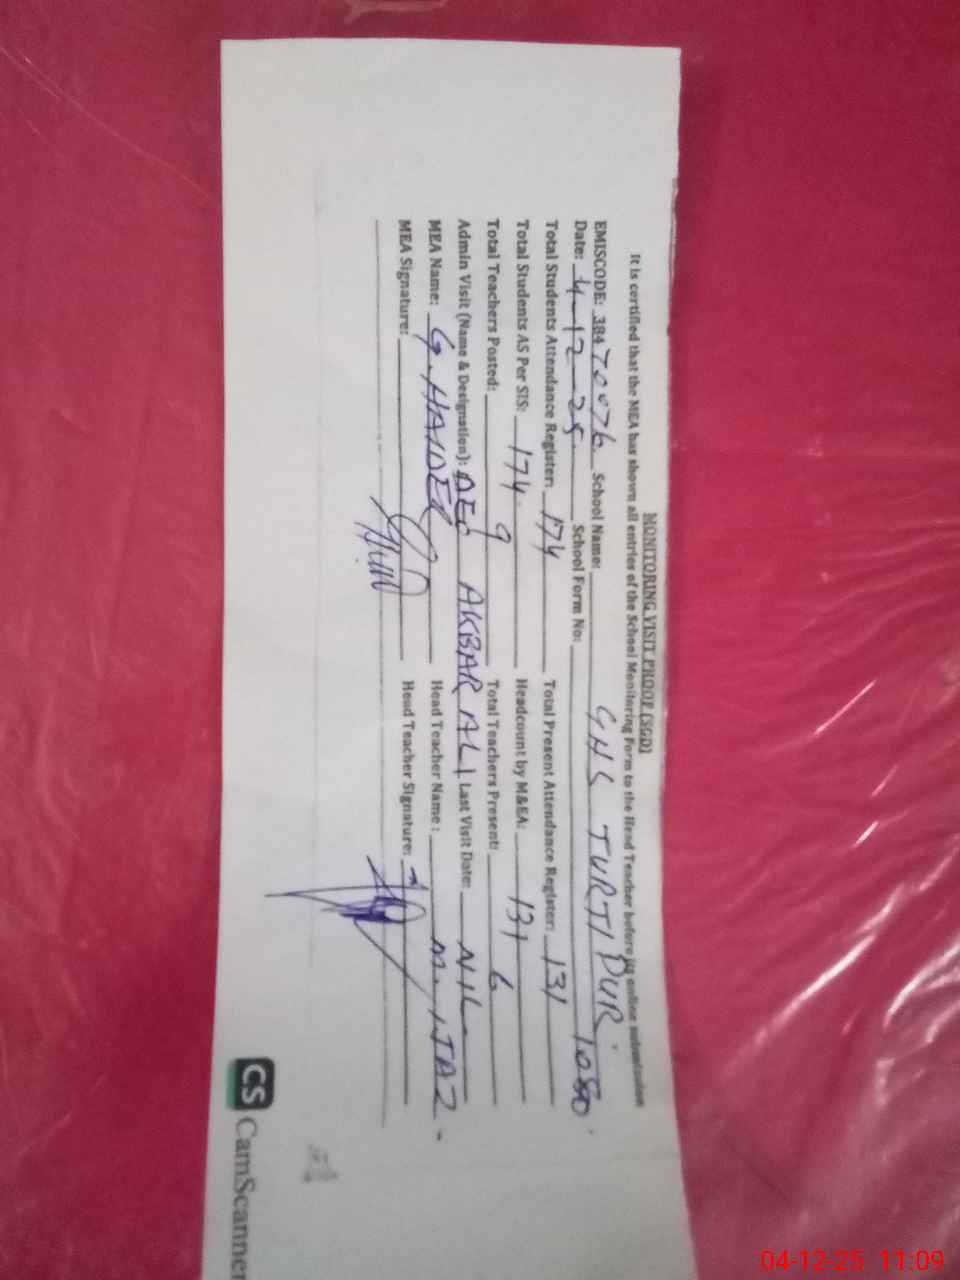 MONITORING VISIT PROOF (SGD)
It is certified that the MEA has shown all entries of the School Monitoring Form to the Head Teacher before its online submission
EMISCODE: 38470076 School Name: GHS TURTI PUR.
Date: 4-12-25 School Form No: 1080
Total Students Attendance Register: 174 Total Present Attendance Register: 131
Total Students AS Per SIS: 174. Headcount by M&EA: 131
Total Teachers Posted: 9 Total Teachers Present: 6
Admin Visit (Name & Designation): AKBAR ALI Last Visit Date: NIL
MEA Name: G. HAIDER Head Teacher Name: M. IJAZ
MEA Signature: Head Teacher Signature:
CS CamScanner
04-12-25 11:09